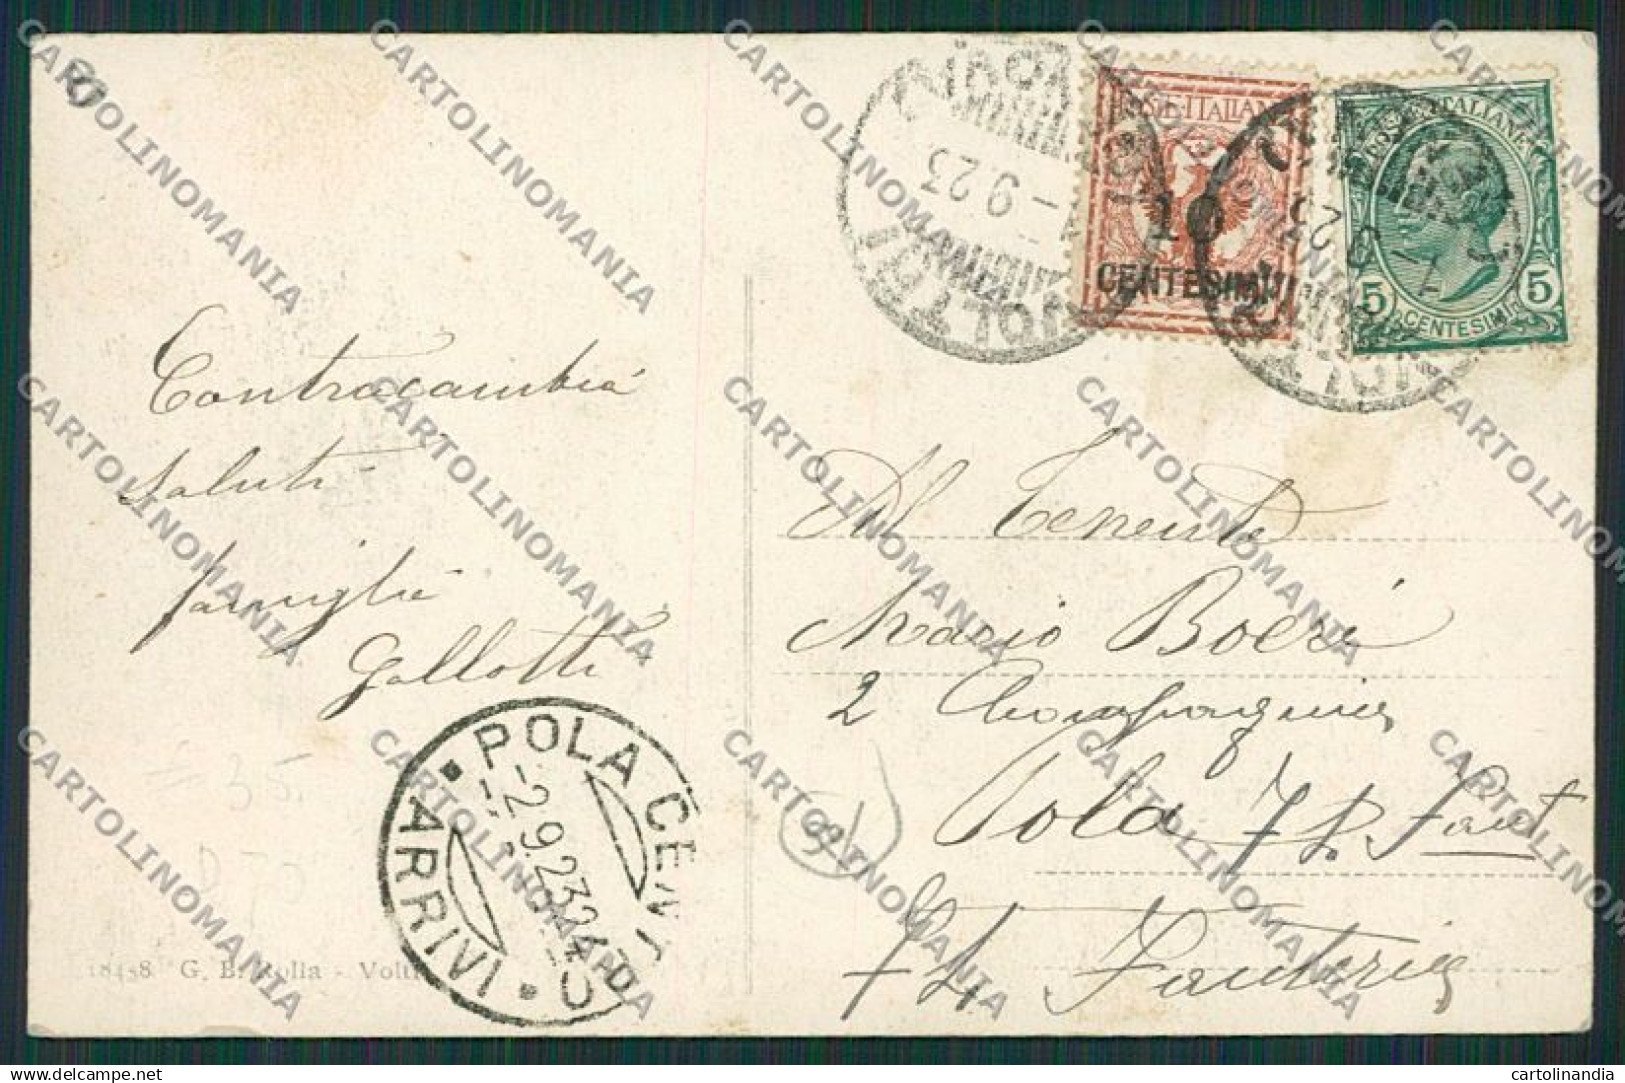 POSTE ITALIANE
10
CENTESIMI
POSTE ITALIANE
5 5
CENTESIMI
9.23
VOLTRI
VOLTRI
Contracambia
saluti
famiglia
Gallotti
Al Tenente
Mario Boeri
2 Compagnia
Pola 7 R. Fant
Fanteria
POLA CENTRO
2.9.23.24
ARRIVI
18458. G. B. Rolla - Voltri
CARTOLINOMANIA
cartolinandia